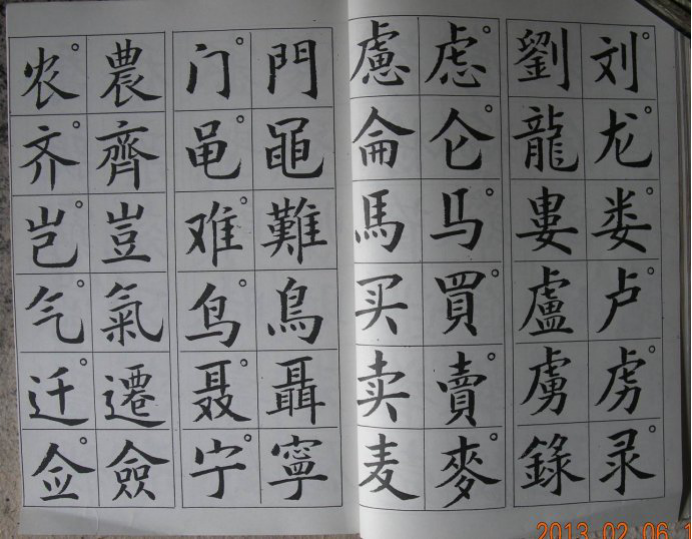 刘龙娄卢虏录
劉龍婁盧虜録
虑仑马買賣麥
慮侖馬买卖麦
門黽難鳥聶寧
门黾难鸟聂宁
農齊豈氣遷僉
农齐岂气迁佥
2013.02.06